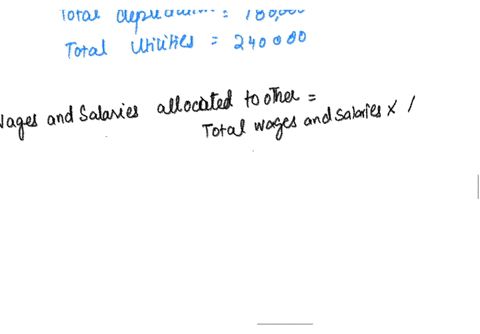 Total = 180,000
Total Utilities = 240000
Wages and Salaries allocated to other =
Total wages and salaries × /